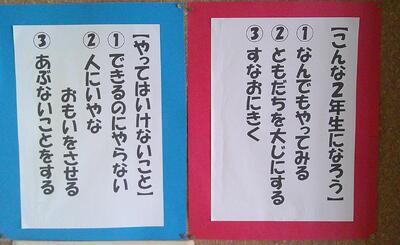 【こんな２年生になろう】
①なんでもやってみる
②ともだちを大じにする
③すなおにきく
【やってはいけないこと】
①できるのにやらない
②人にいやな
おもいをさせる
③あぶないことをする